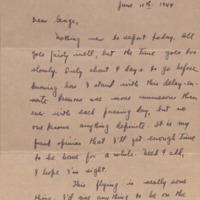 June 10th 1944
Dear George,
Nothing new to report today. All
goes fairly well, but the time goes too
slowly. Only about 9 days to go before
knowing how I stand with this delay-in-
Rumors are more numerous than
ever with each passing day, but no
one knows anything definite. It is my
opinion that I'll get enough time
to be home for a while. And I
I hope I'm right.
This flying is really some
thing. I'd give anything to be on the